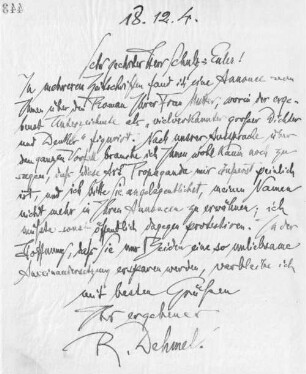 344
18.12.4.
Sehr geehrter Herr Schulz-Euler!
In mehreren Zeitschriften fand ich eine Annonce von
Ihnen über den Roman Ihrer Frau Mutter, worin der erge-
benst Unterzeichnete als „vielverkannter großer Dichter
und Denker" figurirt. Nach unsrer Aussprache über
den ganzen Vorfall brauche ich Ihnen wohl kaum noch zu
sagen, daß diese Art Propaganda mir äußerst peinlich
ist, und ich bitte Sie angelegentlichst, meinen Namen
nicht mehr in Ihren Annoncen zu erwähnen; ich
müßte sonst öffentlich dagegen protestiren. In der
Hoffnung, daß Sie uns Beiden eine so unliebsame
Auseinandersetzung ersparen werden, verbleibe ich
mit besten Grüßen
Ihr ergebener
R. Dehmel.